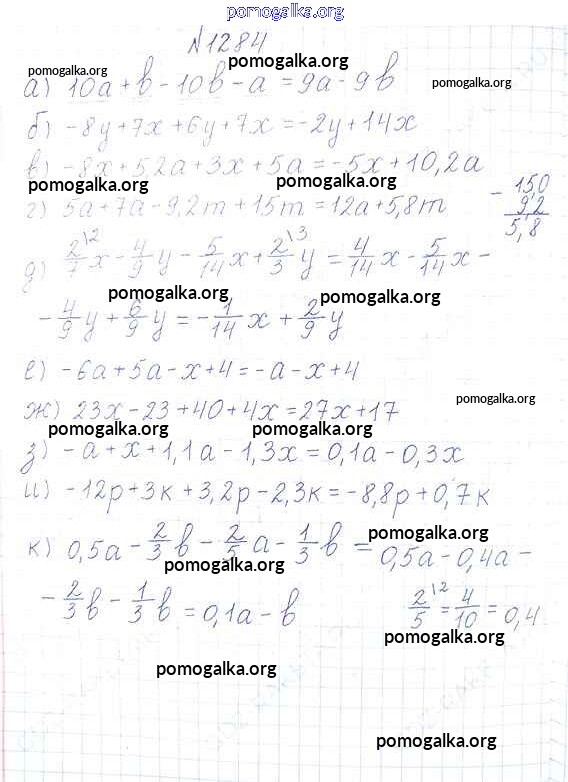 pomogalka.org
№1284
pomogalka.org
pomogalka.org
а) 10a + b - 10b - a = 9a - 9b
pomogalka.org
б) -8y + 7x + 6y + 7x = -2y + 14x
в) -8x + 5,2a + 3x + 5a = -5x + 10,2a
pomogalka.org pomogalka.org
г) 5a + 7a - 9,2m + 15m = 12a + 5,8m
- 15,0
9,2
5,8
д) 2/7\2 x - 4/9 y - 5/14 x + 2/3\3 y = 4/14 x - 5/14 x -
pomogalka.org pomogalka.org
- 4/9 y + 6/9 y = - 1/14 x + 2/9 y
е) -6a + 5a - x + 4 = -a - x + 4
pomogalka.org
ж) 23x - 23 + 40 + 4x = 27x + 17
pomogalka.org pomogalka.org
з) -a + x + 1,1a - 1,3x = 0,1a - 0,3x
и) -12p + 3к + 3,2p - 2,3к = -8,8p + 0,7к
pomogalka.org
к) 0,5a - 2/3 b - 2/5 a - 1/3 b = 0,5a - 0,4a -
pomogalka.org
- 2/3 b - 1/3 b = 0,1a - b
2/5\2 = 4/10 = 0,4
pomogalka.org
pomogalka.org
pomogalka.org